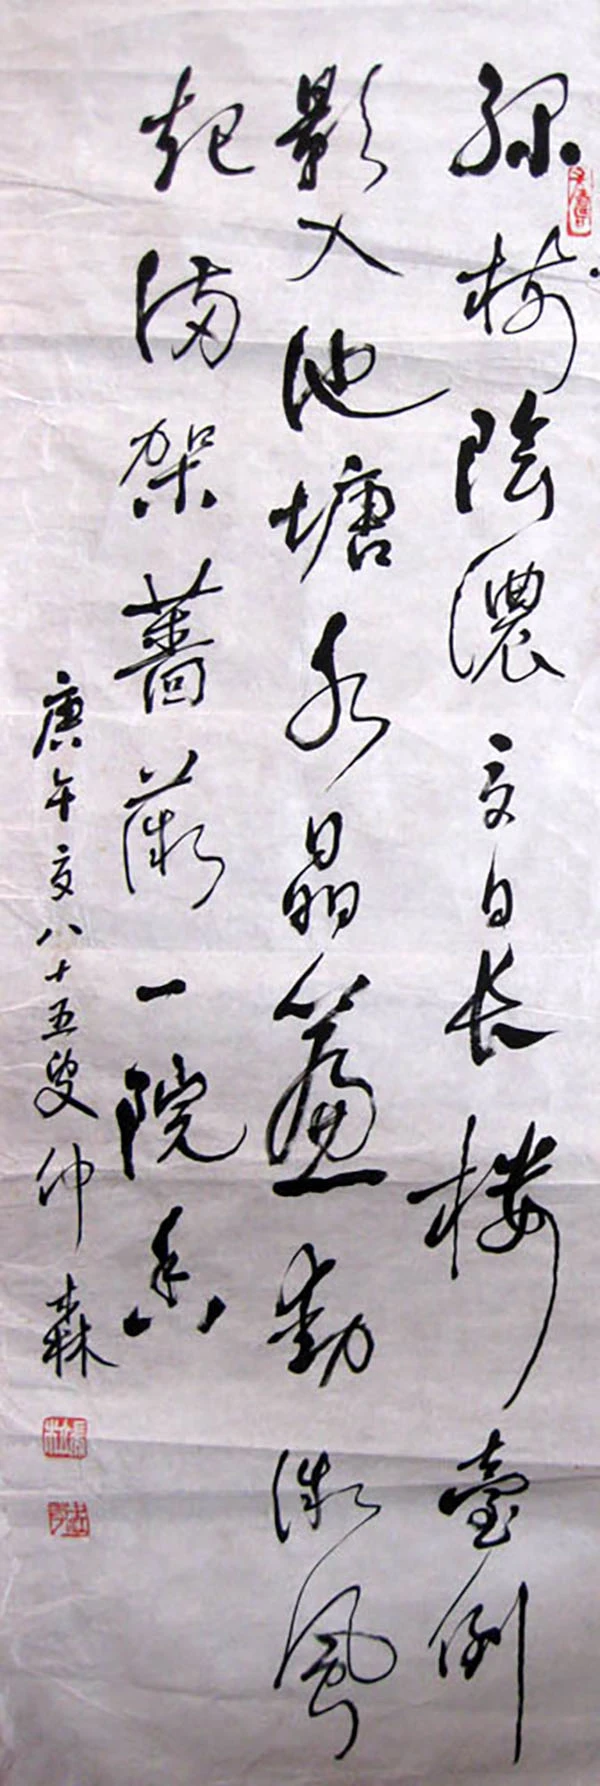 綠树陰濃夏日长楼臺倒
影入池塘水晶簾動微風
起满架薔薇一院香
庚午夏八十五叟仲森